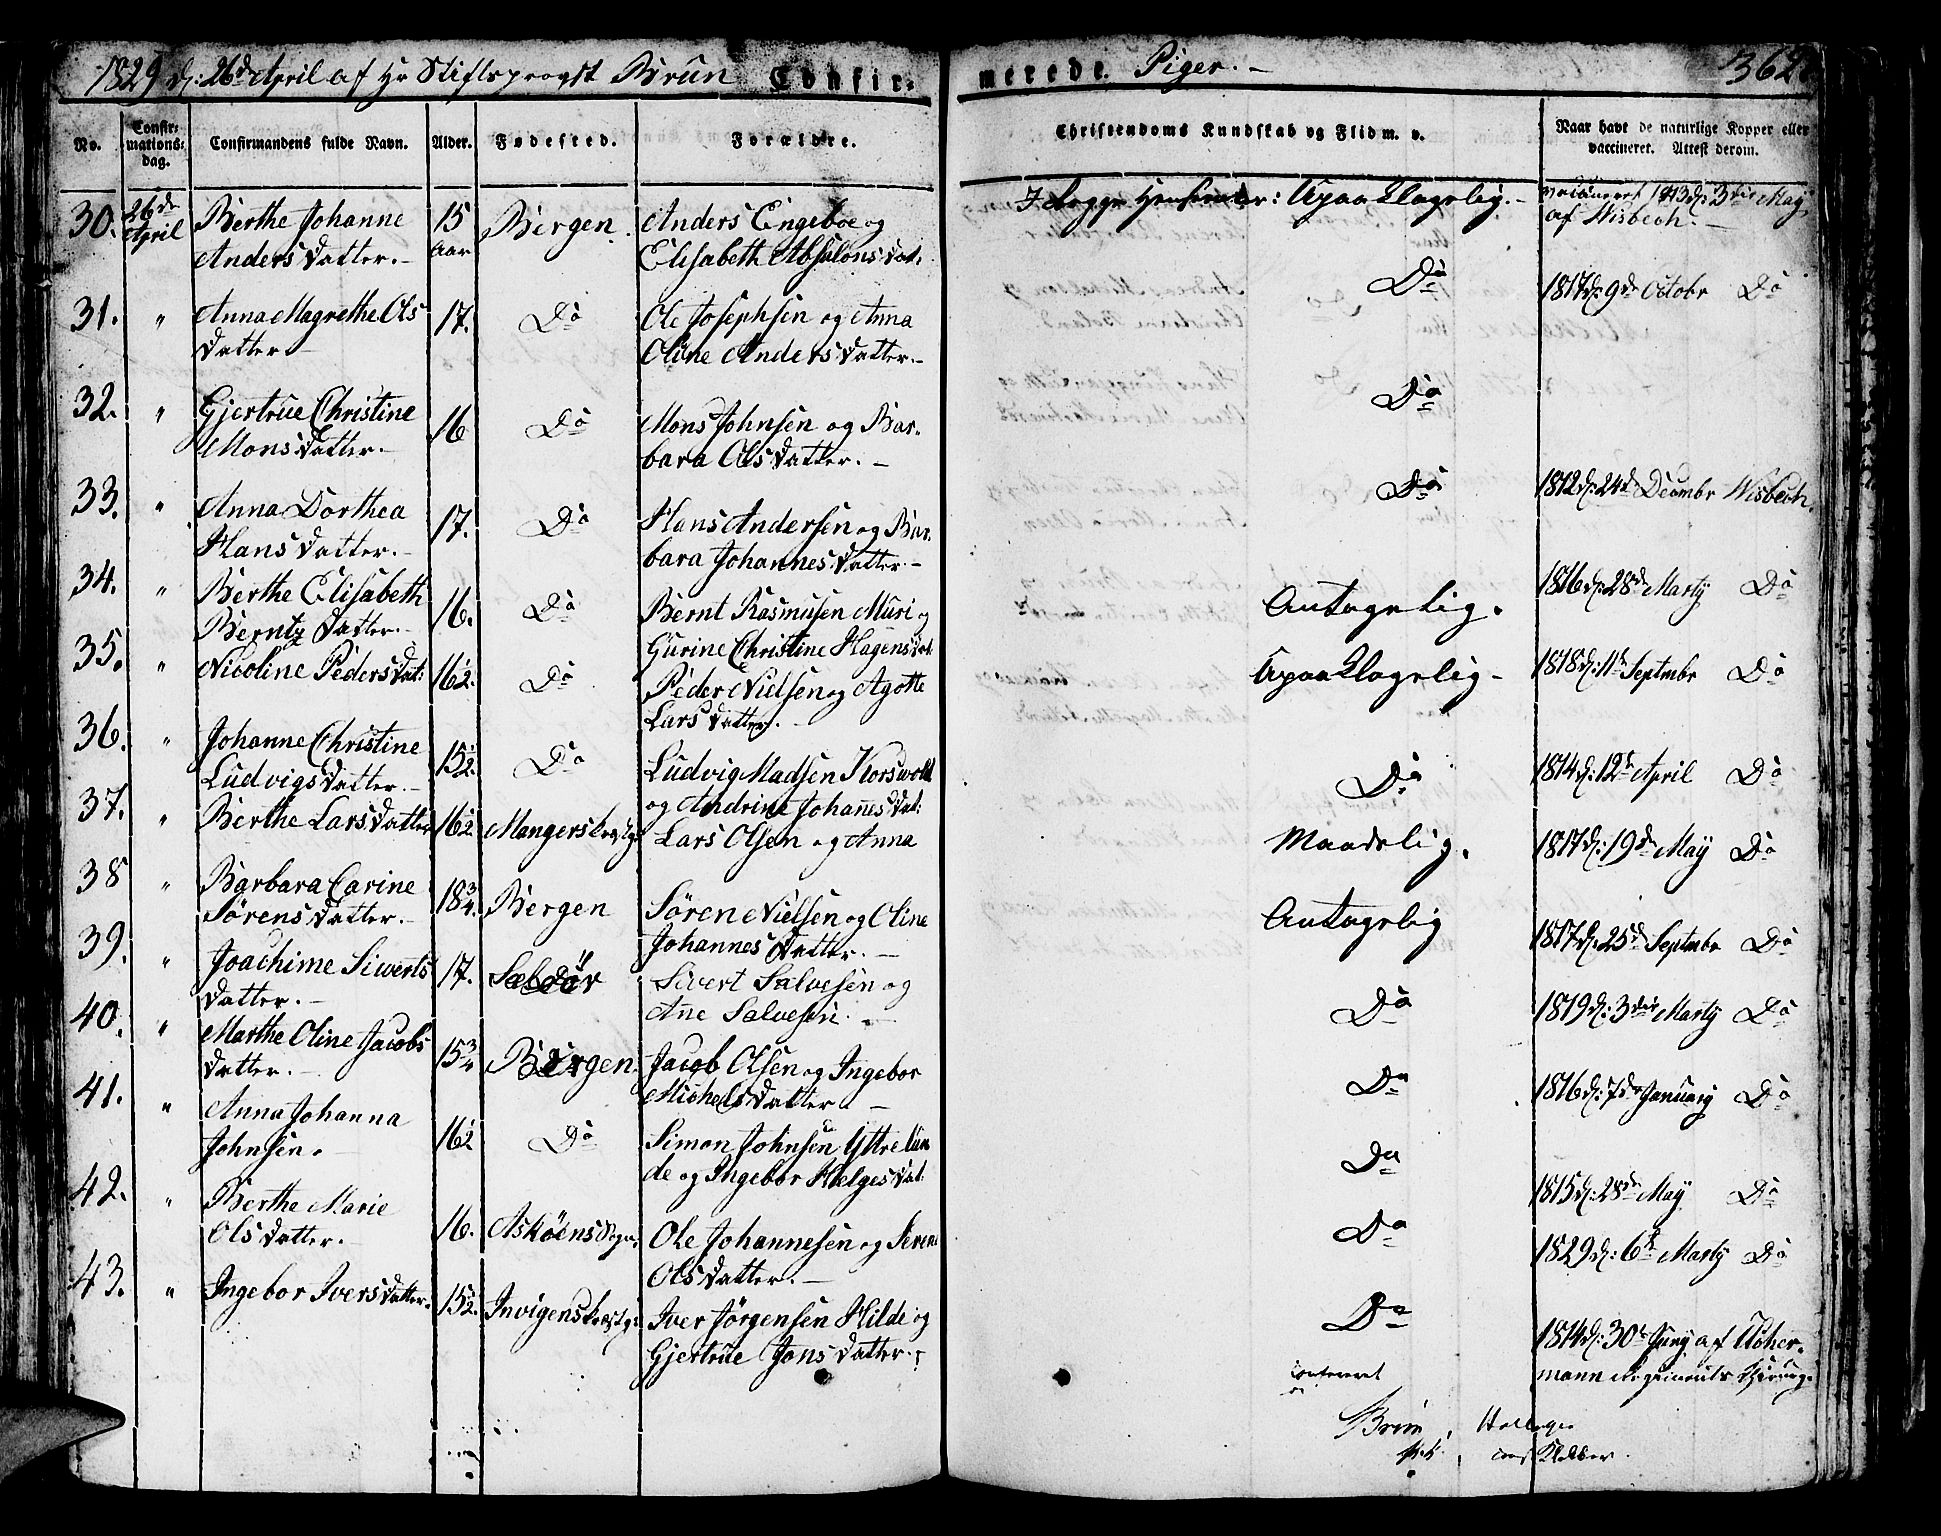 1829 d: 26de April af Hr Stiftsprovst Brun Confir-
merede Piger. 362
No. Confirmationsdag. Confirmandens fulde Navn. Alder. Fødested. Forældre. Christendoms Kundskab og Flid m. v. Naar havt de naturlige Kopper eller vaccineret. Attest derom.
30. 26de April Berthe Johanne 15 Aar Bergen. Anders Engeboe og
Anders Datter. Elisabeth Absalons Dat:
I begge Hensender: Upaaklagelig. Vaccineret 1813 d: 3die May
af Wisbech.
31. " Anna Magrethe Ols 17. Do Ole Josephsen og Anna Do 1817 d: 9de Octobr Do
Datter. Oline Anders Datter.
32. " Gjertrue Christine 16 Do Mons Johnsen og Bar- Do
Mons Datter. bara Ols Datter.
33. " Anna Dorthea 17. Do Hans Andersen og Bar- Do 1812 d: 24de Decembr Wisbech.
Hans Datter. bara Johannes Datter.
34. " Berthe Elisabeth 16. Do Bernt Rasmusen Muri og Antagelig. 1816 d: 28de Marty Do
Berntz Datter. Gurine Christine Hagens Dat:
35. " Nicoline Peders Dat: 16½. Do Peder Nielsen og Agotte Upaaklagelig 1818 d: 11te Septmbr Do
Lars Datter.
36. " Johanne Christine 15½. Do Ludvig Madsen Korswold Do 1814 d: 12te April Do
Ludvigs Datter. og Andrine Johanes Dat:
37. " Berthe Lars Datter 16½ Mangers Præstg: Lars Olsen og Anna Maadelig. 1817 d: 19de May Do
38 " Barbara Carine 18¾. Bergen Søren Nielsen og Oline Antagelig 1817 d: 25de Septmbr Do
Sørens Datter. Johannes Datter.
39. " Joachime Siwerts 17. Sivert Salvesen og Do 1819 d: 3die Marty Do
Datter. Ane Salvesen.
40. " Marthe Oline Jacobs 15¾ Bergen. Jacob Olsen og Ingebor Do 1816 d: 7de January Do
Datter. Michels Datter
41. " Anna Johanna 16½ Do Simon Johnsen Yttrelun- Do 1815 d: 28de May Do
Johnsen. de og Ingebor Helges Dat:
42. " Berthe Marie 16. Askøens Sogn. Ole Johannesen og Serene Do 1829 d: 6te Marty Do
Ols Datter. Ols Datter.
43. " Ingebor Ivers Datter. 15½. Invigens Præstg: Iver Jørgensen Hilde og Do 1814 d: 30te Juny af
Gjertrue Jons Datter. mann Regiments Chirurg.
Confereret
Brun